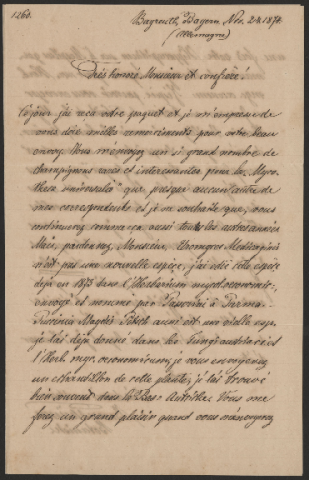 1260.
Bayreuth, Bayern, Nov. 24. 1874
(Allemagne)
Très honoré Monsieur et confrère!
j'ai reçu votre paquet et je m'empresse de
vous dire mille remerciments pour votre beau
envoy. Vous m'envoyez un si grand nombre de
champignons rares et interessantes pour la "Myco-
theca universalis" que presque aucun autre de
mes correspondents et je ne souhaite que, vous
aussi toutes les autres années
Mais, pardonnez, Monsieur,
n'est pas une nouvelle espèce, j'ai édé cette espèce
déjà en 1873 dans l'Herbarium mycol. oeconomic.,
envoyé et nommé par Passerini à Parma.
Puccinia aussi est une vieille esp.,
je l'ai déjà donné dans les fungi austr. et
l'Herb. myc. oeconomicum; je vous envoyerai
un echantillon de cette plante, je l'ai trouvé
bien souvent dans la Basse Autriche. Vous me
ferez un grand plaisir quand vous m'envoyez